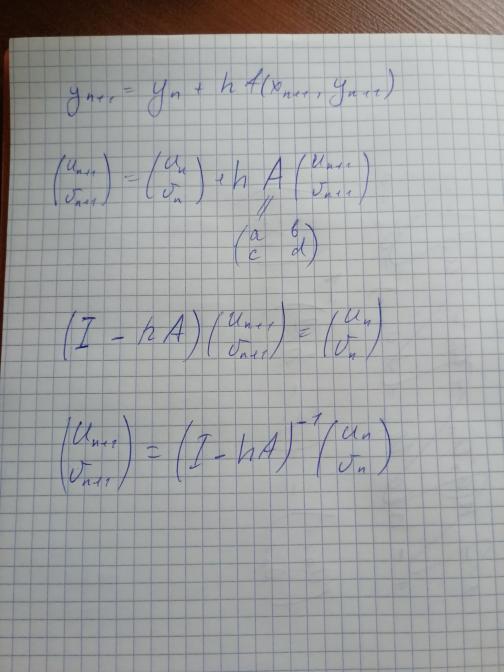 y_{n+1} = y_n + h f(x_{n+1}, y_{n+1})
\begin{pmatrix} u_{n+1} \\ v_{n+1} \end{pmatrix} = \begin{pmatrix} u_n \\ v_n \end{pmatrix} + h A \begin{pmatrix} u_{n+1} \\ v_{n+1} \end{pmatrix}
\begin{pmatrix} a & b \\ c & d \end{pmatrix}
(I - hA) \begin{pmatrix} u_{n+1} \\ v_{n+1} \end{pmatrix} = \begin{pmatrix} u_n \\ v_n \end{pmatrix}
\begin{pmatrix} u_{n+1} \\ v_{n+1} \end{pmatrix} = (I - hA)^{-1} \begin{pmatrix} u_n \\ v_n \end{pmatrix}